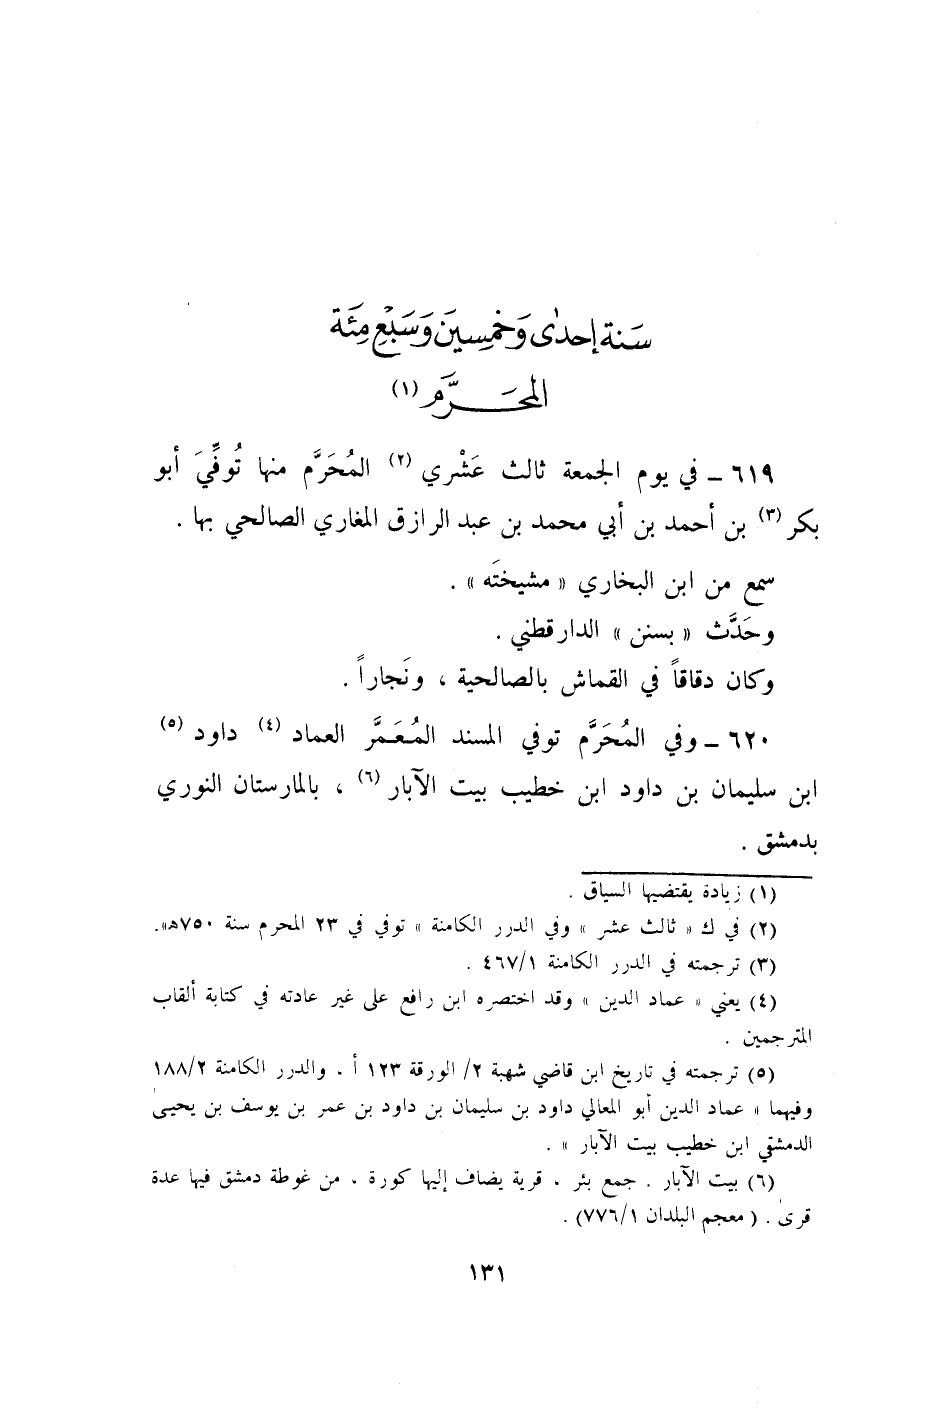 سَنة إحدىٰ وَخمسِينَ وَسَبْعِ مِئَة
المحَرَّم (١)
٦١٩ ــ في يوم الجمعة ثالث عَشْري (٢) المُحَرَّم منها تُوفِّيَ أبو
بكر (٣) بن أحمد بن أبي محمد بن عبد الرازق المغاري الصالحي بها .
سمع من ابن البخاري « مشيختَه » .
وحَدَّث « بسنن » الدارقطني .
وكان دقاقاً في القماش بالصالحية ، ونَجاراً .
٦٢٠ ــ وفي المُحَرَّم توفي المسند المُعَمَّر العماد (٤) داود (٥)
ابن سليمان بن داود ابن خطيب بيت الآبار (٦) ، بالمارستان النوري
بدمشق .
(١) زيادة يقتضيها السياق .
(٢) في ك « ثالث عشر » وفي الدرر الكامنة « توفي في ٢٣ المحرم سنة ٧٥٠هـ».
(٣) ترجمته في الدرر الكامنة ٤٦٧/١ .
(٤) يعني « عماد الدين » وقد اختصره ابن رافع على غير عادته في كتابة ألقاب
المترجمين .
(٥) ترجمته في تاريخ ابن قاضي شهبة ٢/ الورقة ١٢٣ أ . والدرر الكامنة ١٨٨/٢
وفيهما « عماد الدين أبو المعالي داود بن سليمان بن داود بن عمر بن يوسف بن يحيىٰ
الدمشقي ابن خطيب بيت الآبار » .
(٦) بيت الآبار . جمع بئر . قرية يضاف إليها كورة . من غوطة دمشق فيها عدة
قرىٰ . ( معجم البلدان ٧٧٦/١) .
١٣١